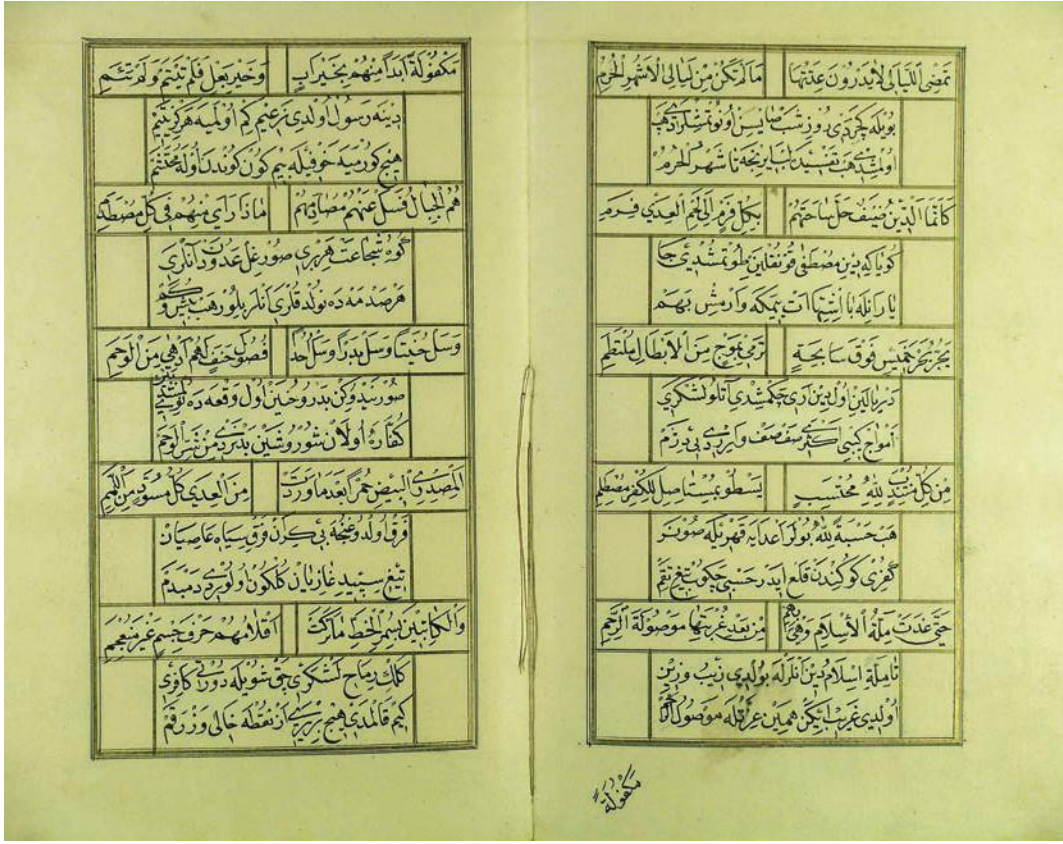 تَمْضِى اللَّيَالِى وَلَا يَدْرُونَ عِدَّتَهَا مَا لَمْ تَكُنْ مِنْ لَيَالِى الْاَشْهُرِ الْحُرُمِ
بويله چكردى روز شب صايسن اونوتمشلردى هپ
اولمشدى هپ تا شهر الحرم
كَاَنَّمَا الدِّينُ ضَيْفٌ حَلَّ سَاحَتَهُمْ بِكُلِّ قَرْمٍ اِلَى لَحْمِ الْعِدَى قَرِمِ
كويا كه دين مصطفى قونقلين طوتمشدى جا
يارانله با اشتها ات ييمكه وارمش بهم
يَجُرُّ بَحْرَ خَمِيسٍ فَوْقَ سَابِحَةٍ تَرْمِى بِمَوْجٍ مِنَ الْاَبْطَالِ مُلْتَطِمِ
دريالين اول دين ارى چكمشدى آتلو لشكرى
امواج كبى صف صف ويرردى بى دژم
مِنْ كُلِّ مُنْتَدِبٍ لِلّٰهِ مُحْتَسِبٍ يَسْطُو بِمُسْتَأْصِلٍ لِلْكُفْرِ مُصْطَلِمِ
هب حسبة لله بولر اعدايه قهريله صونر
كفرى كوكندن قلع ايدر حسبى چكوب تيغ نقم
حَتَّى غَدَتْ مِلَّةُ الْاِسْلَامِ وَهْىَ بِهِمْ مِنْ بَعْدِ غُرْبَتِهَا مَوْصُولَةَ الرَّحِمِ
تا ملة اسلام دين آنلرله بولدى زيب وزين
اولدى غريب ايكن همين عزتله موصول
مَكْفُولَةً
مَكْفُولَةً اَبَدًا مِنْهُمْ بِخَيْرِ اَبٍ وَخَيْرِ بَعْلٍ فَلَمْ تَيْتَمْ وَلَمْ تَئِمِ
دينه رسول اولدى زعيم كم اولميه هركز يتيم
هيچ كورميه خوفيله بيم كون كوندن اوله محتشم
هُمُ الْجِبَالُ فَسَلْ عَنْهُمْ مُصَادِمَهُمْ مَاذَا رَاَى مِنْهُمْ فِى كُلِّ مُصْطَدَمِ
كوه شجاعت هر برى صورغل عدودن آنلرى
هر صدمه ده نولدقلرى آنلر بلور هب بيش وكم
وَسَلْ حُنَيْنًا وَسَلْ بَدْرًا وَسَلْ اُحُدًا فُصُولُ حَتْفٍ لَهُمْ اَدْهَى مِنَ الْوَخَمِ
صور بدر وحنين اول وقعه ده
كفاره اولان شور وشين بدتردى من شر الوخم
اَلْمُصْدِرِى الْبِيضِ حُمْرًا بَعْدَ مَا وَرَدَتْ مِنَ الْعِدَى كُلَّ مُسْوَدٍّ مِنَ اللِّمَمِ
غرق اولدوغنجه بى كران فرق سياه عاصيان
تيغ سپيد غازيان كلكون اولوردى دمبدم
وَالْكَاتِبِينَ بِسُمْرِ الْخَطِّ مَا تَرَكَتْ اَقْلَامُهُمْ حَرْفَ جِسْمٍ غَيْرَ مُنْعَجِمِ
كلك رماح لشكرى چق شويله دوردى كافرى
كيم قالمدى هيچ بر يرى از نقطه خالى وز رقم